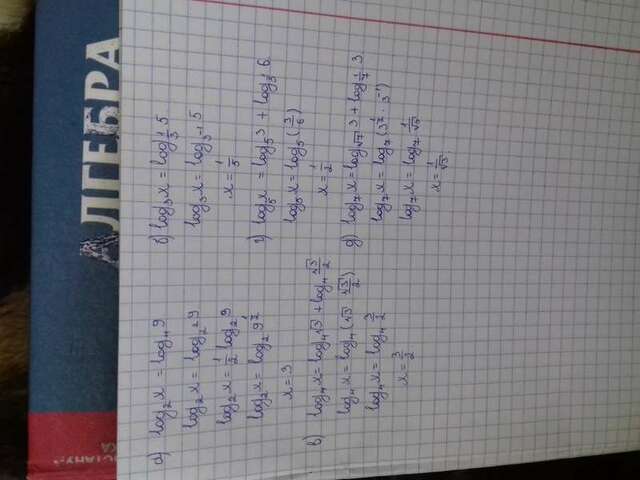 СТАНУР
КА
АЛГЕБРА
а) log₂x = log₄9
log₂x = log₂²9
log₂x = 1/2 log₂9
log₂x = log₂9^(1/2)
x = 3
б) log₃x = log_(1/3) 5
log₃x = log₃₋₁ 5
x = 1/5
в) log₄x = log₄√3 + log₄ √3/2
log₄x = log₄(√3 · √3/2)
log₄x = log₄ 3/2
x = 3/2
г) log₅x = log₅3 + log_(1/5) 6
log₅x = log₅(3/6)
x = 1/2
д) log₇x = log_(√7) 3 + log_(1/7) 3
log₇x = log₇(3^(1/2) · 3⁻¹)
log₇x = log₇ 1/√3
x = 1/√3